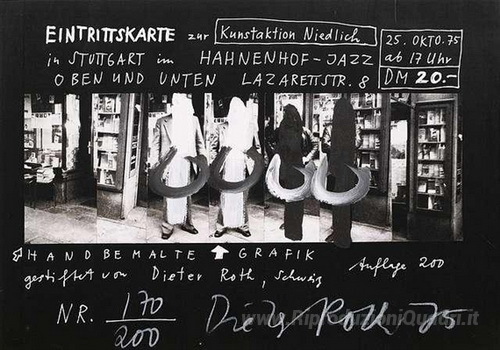 EINTRITTSKARTE zur Kunstaktion Niedlich
in STUTTGART im HAHNENHOF-JAZZ
OBEN UND UNTEN LAZARETTSTR. 8
25. OKTO. 75
ab 17 Uhr
DM 20.-
HANDBEMALTE GRAFIK
gestiftet von Dieter Roth, Schweiz
Auflage 200
NR. 170/200
Dieter Roth 75
www.RiproduzioniQuadri.it